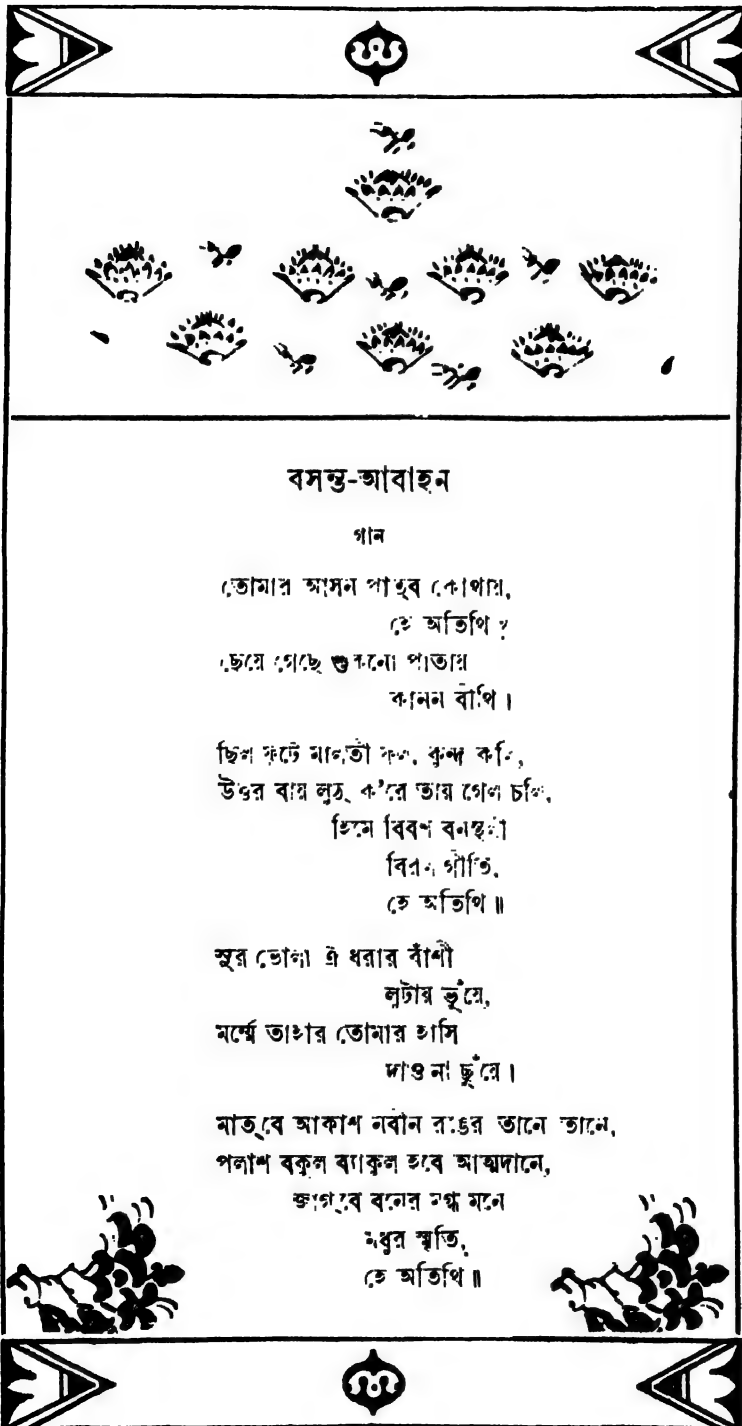 বসন্ত-আবাহন
গান
তোমার আসন পাত্‌ব কোথায়,
হে অতিথি ?
ছেয়ে গেছে শুকনো পাতায়
কানন বীথি ।
ছিল ফুটে মালতী ফুল, কুন্দ কলি,
উত্তর বায় লুঠ্ ক'রে তায় গেল চলি,
হিমে বিবশ বনস্থলী
বিরল গীতি,
হে অতিথি ॥
সুর ভোলা ঐ ধরার বাঁশী
লুটায় ভূঁয়ে,
মর্ম্মে তাহার তোমার হাসি
দাও না ছুঁয়ে ।
মাত্‌বে আকাশ নবীন রঙের তানে তানে,
পলাশ বকুল ব্যাকুল হবে আত্মদানে,
জাগ্‌বে বনের মুগ্ধ মনে
মধুর স্মৃতি,
হে অতিথি ॥